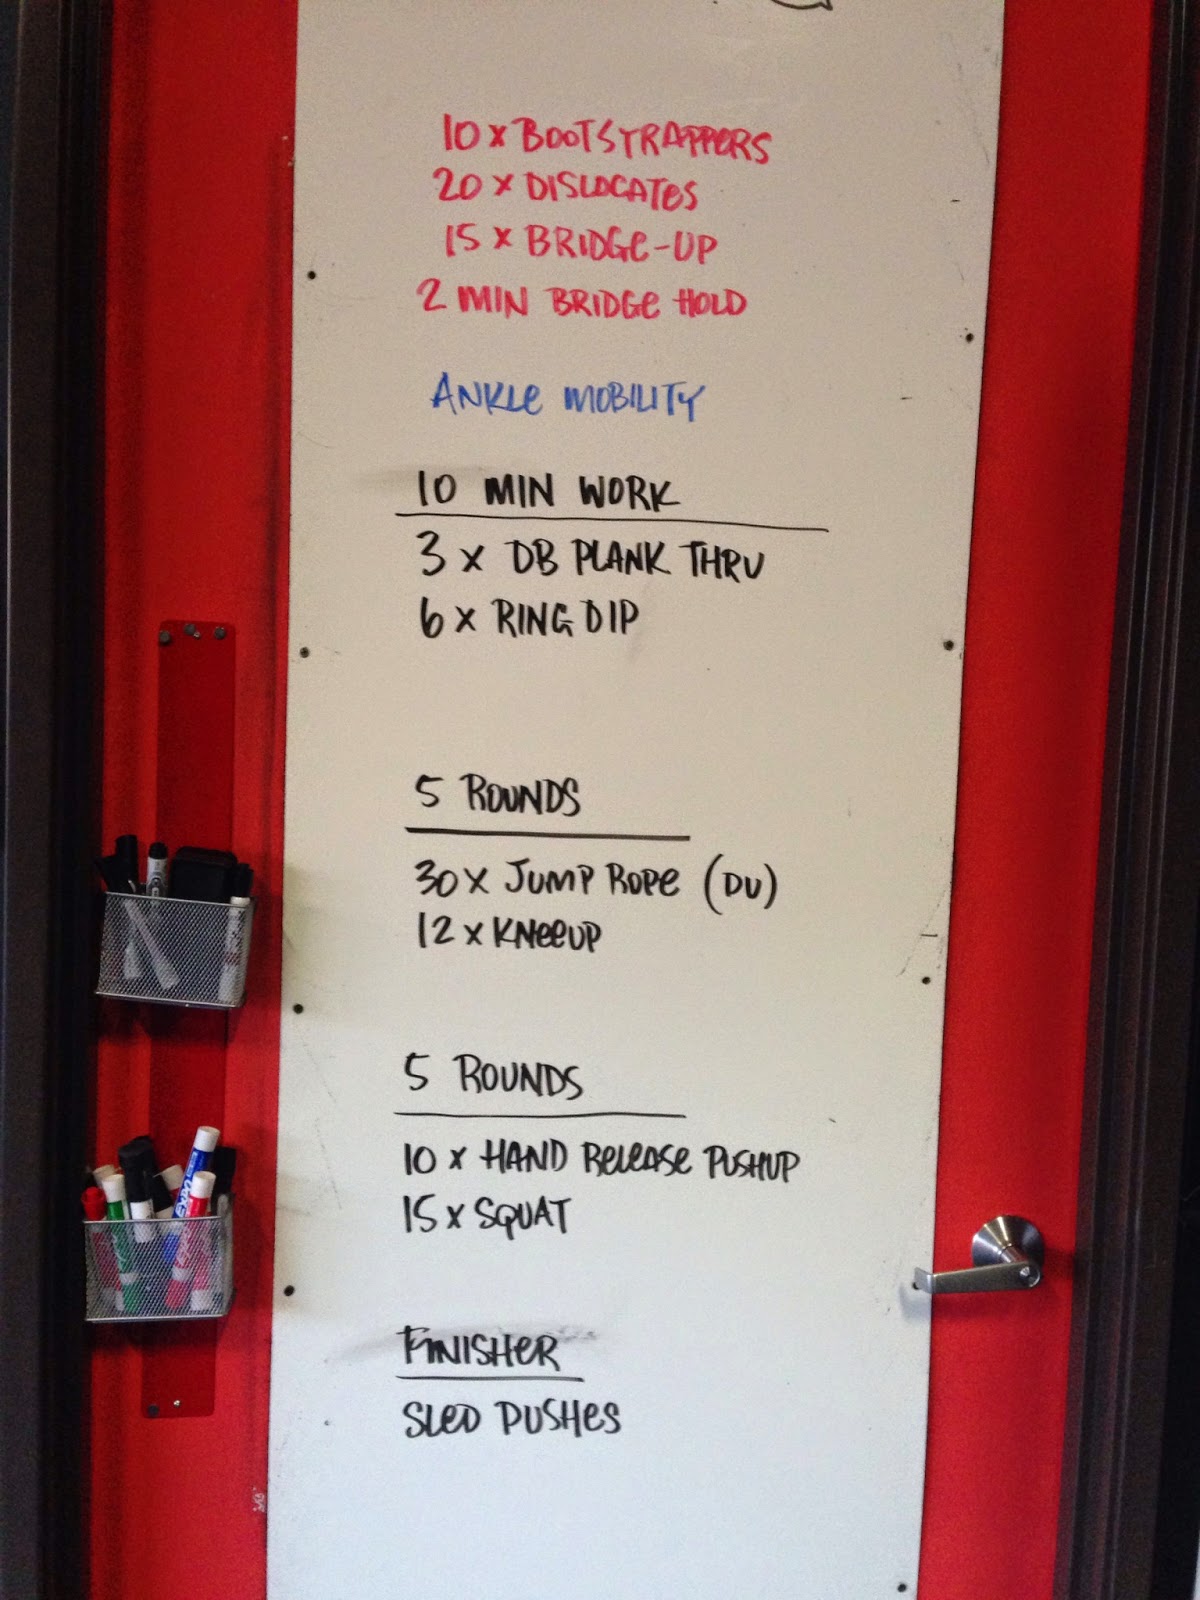 10 x BOOTSTRAPPERS
20 x DISLOCATES
15 x BRIDGE-UP
2 MIN BRIDGE HOLD
ANKLE MOBILITY
10 MIN WORK
3 x DB PLANK THRU
6 x RING DIP
5 ROUNDS
30 x JUMP ROPE (DU)
12 x KNEEUP
5 ROUNDS
10 x HAND RELEASE PUSHUP
15 x SQUAT
FINISHER
SLED PUSHES